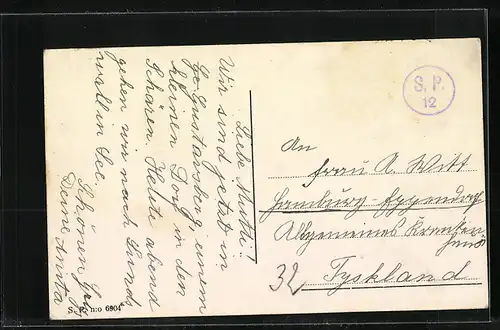 Liebe Mutti!
Wir sind jetzt in
Gustavsberg, einem
kleinen Dorf in den
Schären. Heute abend
gehen wir nach Sunds-
wall in See.
Schönen Gruß
Deine Anita
S. P.
12
An
Frau A. Witt
Hamburg-Eppendorf
Allgemeines Kranken-
haus
32
Tyskland
n:o 6904